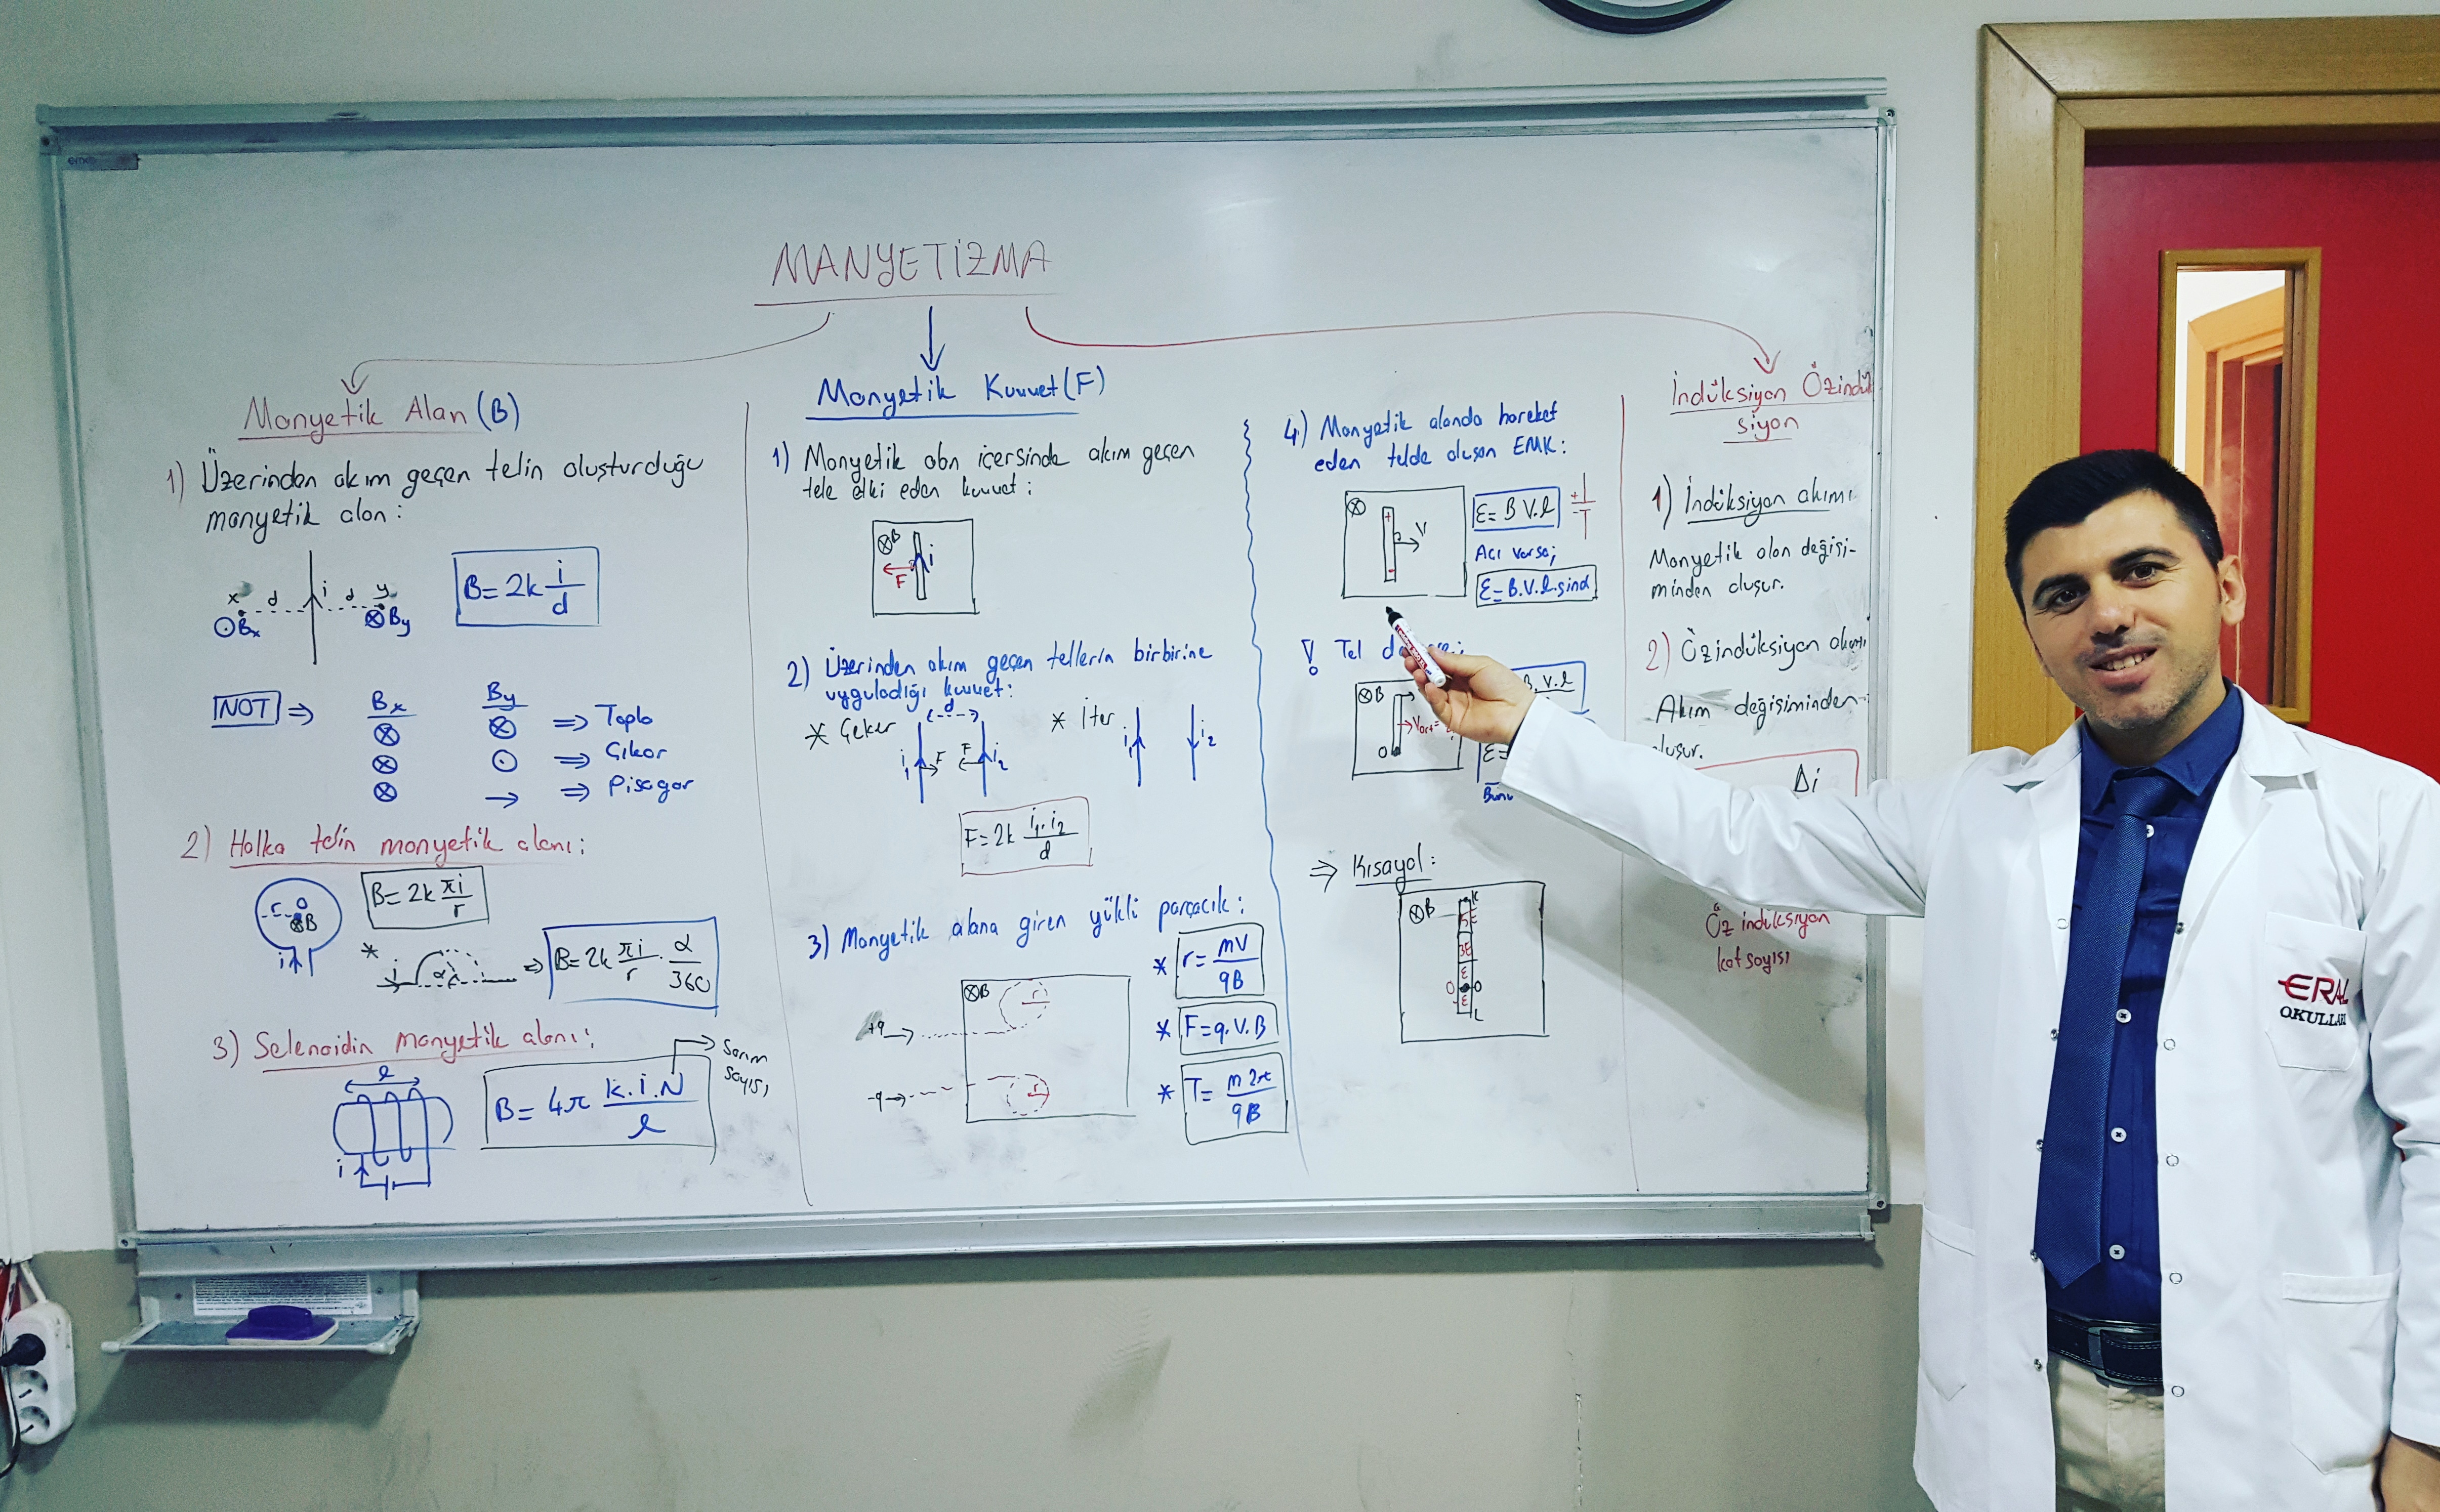 MANYETİZMA
Manyetik Alan (B)
1) Üzerinden akım geçen telin oluşturduğu
manyetik alan:
x d i d y
Bx By
B=2k i/d
NOT ⇒ Bx By
⊗ ⊗ ⇒ Topla
⊗ ⊙ ⇒ Çıkar
⊗ → ⇒ Pisagor
2) Halka telin manyetik alanı:
r O
⊗B
i
B=2k πi/r
* i α ⇒ B=2k πi/r . α/360
3) Selenoidin manyetik alanı:
l
i
B= 4π k.i.N/l
Sarım
sayısı
Manyetik Kuvvet (F)
1) Manyetik alan içersinde akım geçen
tele etki eden kuvvet:
⊗B i
F
2) Üzerinden akım geçen tellerin birbirine
uyguladığı kuvvet:
* Çeker d * İter
i1 F F i2 i1 i2
F=2k i1.i2/d
3) Manyetik alana giren yüklü parçacık:
⊗B r
+q
-q r
* r= mV/qB
* F=q.V.B
* T= m2π/qB
4) Manyetik alanda hareket
eden telde oluşan EMK:
⊗ + - V
ε= B.V.l + -
Açı varsa;
ε=B.V.l.sinα
! Tel
⊗B
O
Vort=
B.V.l
ε=
⇒ Kısayol:
⊗B K
5ε
3ε
ε
O O
ε
L
İndüksiyon Özindük
siyon
1) İndüksiyon akımı
Manyetik alan değişi-
minden oluşur.
2) Özindüksiyon akımı
Akım değişiminden
oluşur.
Δi
Öz indüksiyon
katsayısı
ERAL
OKULLARI